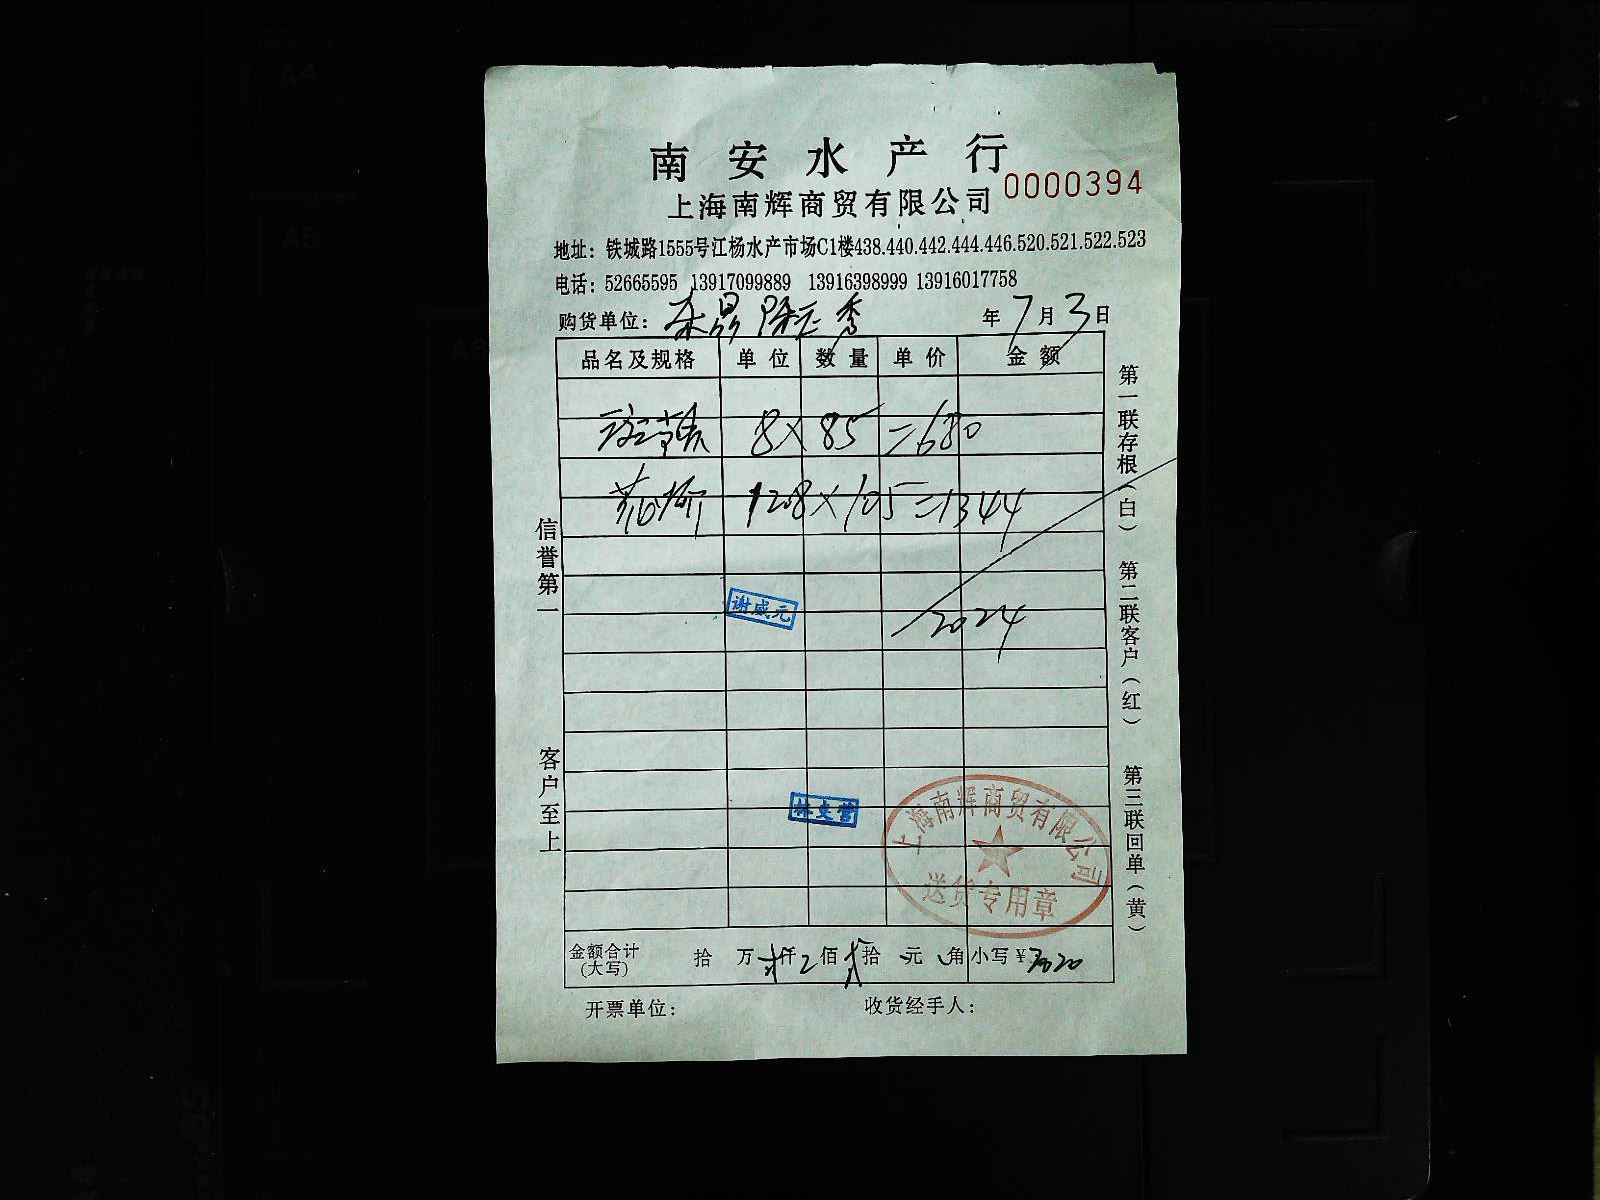 南安水产行
上海南辉商贸有限公司 0000394
地址：铁城路1555号江杨水产市场C1楼438.440.442.444.446.520.521.522.523
电话：52665595 13917099889 13916398999 13916017758
购货单位： 年 7 月 3 日
品名及规格 单位 数量 单价 金额
8 × 85 = 680
128 × 105 = 1344
2024
谢威元
林支营
上海南辉商贸有限公司
送货专用章
金额合计(大写) 拾 万 仟 佰 拾 元 角 小写¥ 2020
开票单位： 收货经手人：
信誉第一
客户至上
第一联存根（白） 第二联客户（红） 第三联回单（黄）